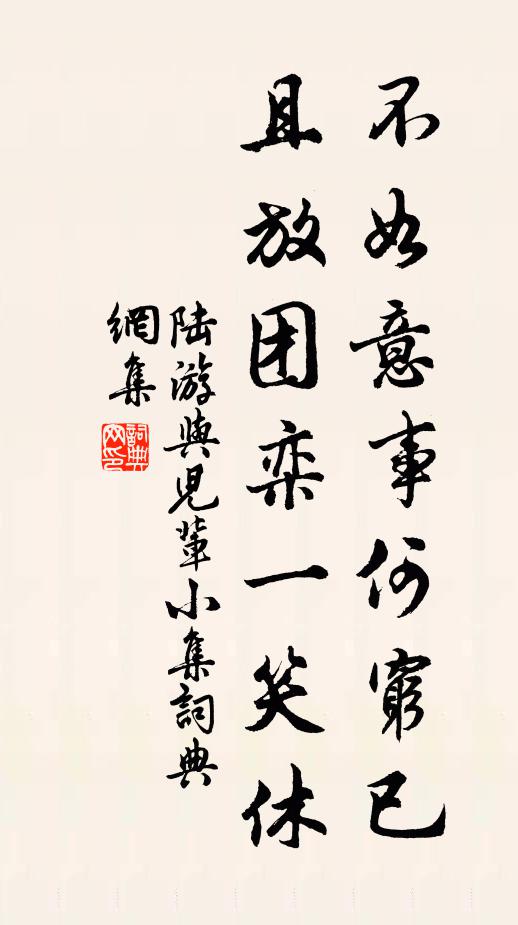 不如意事何窮已
且放团栾一笑休
陆游與児輩小集詞典
網集
詞典
网印